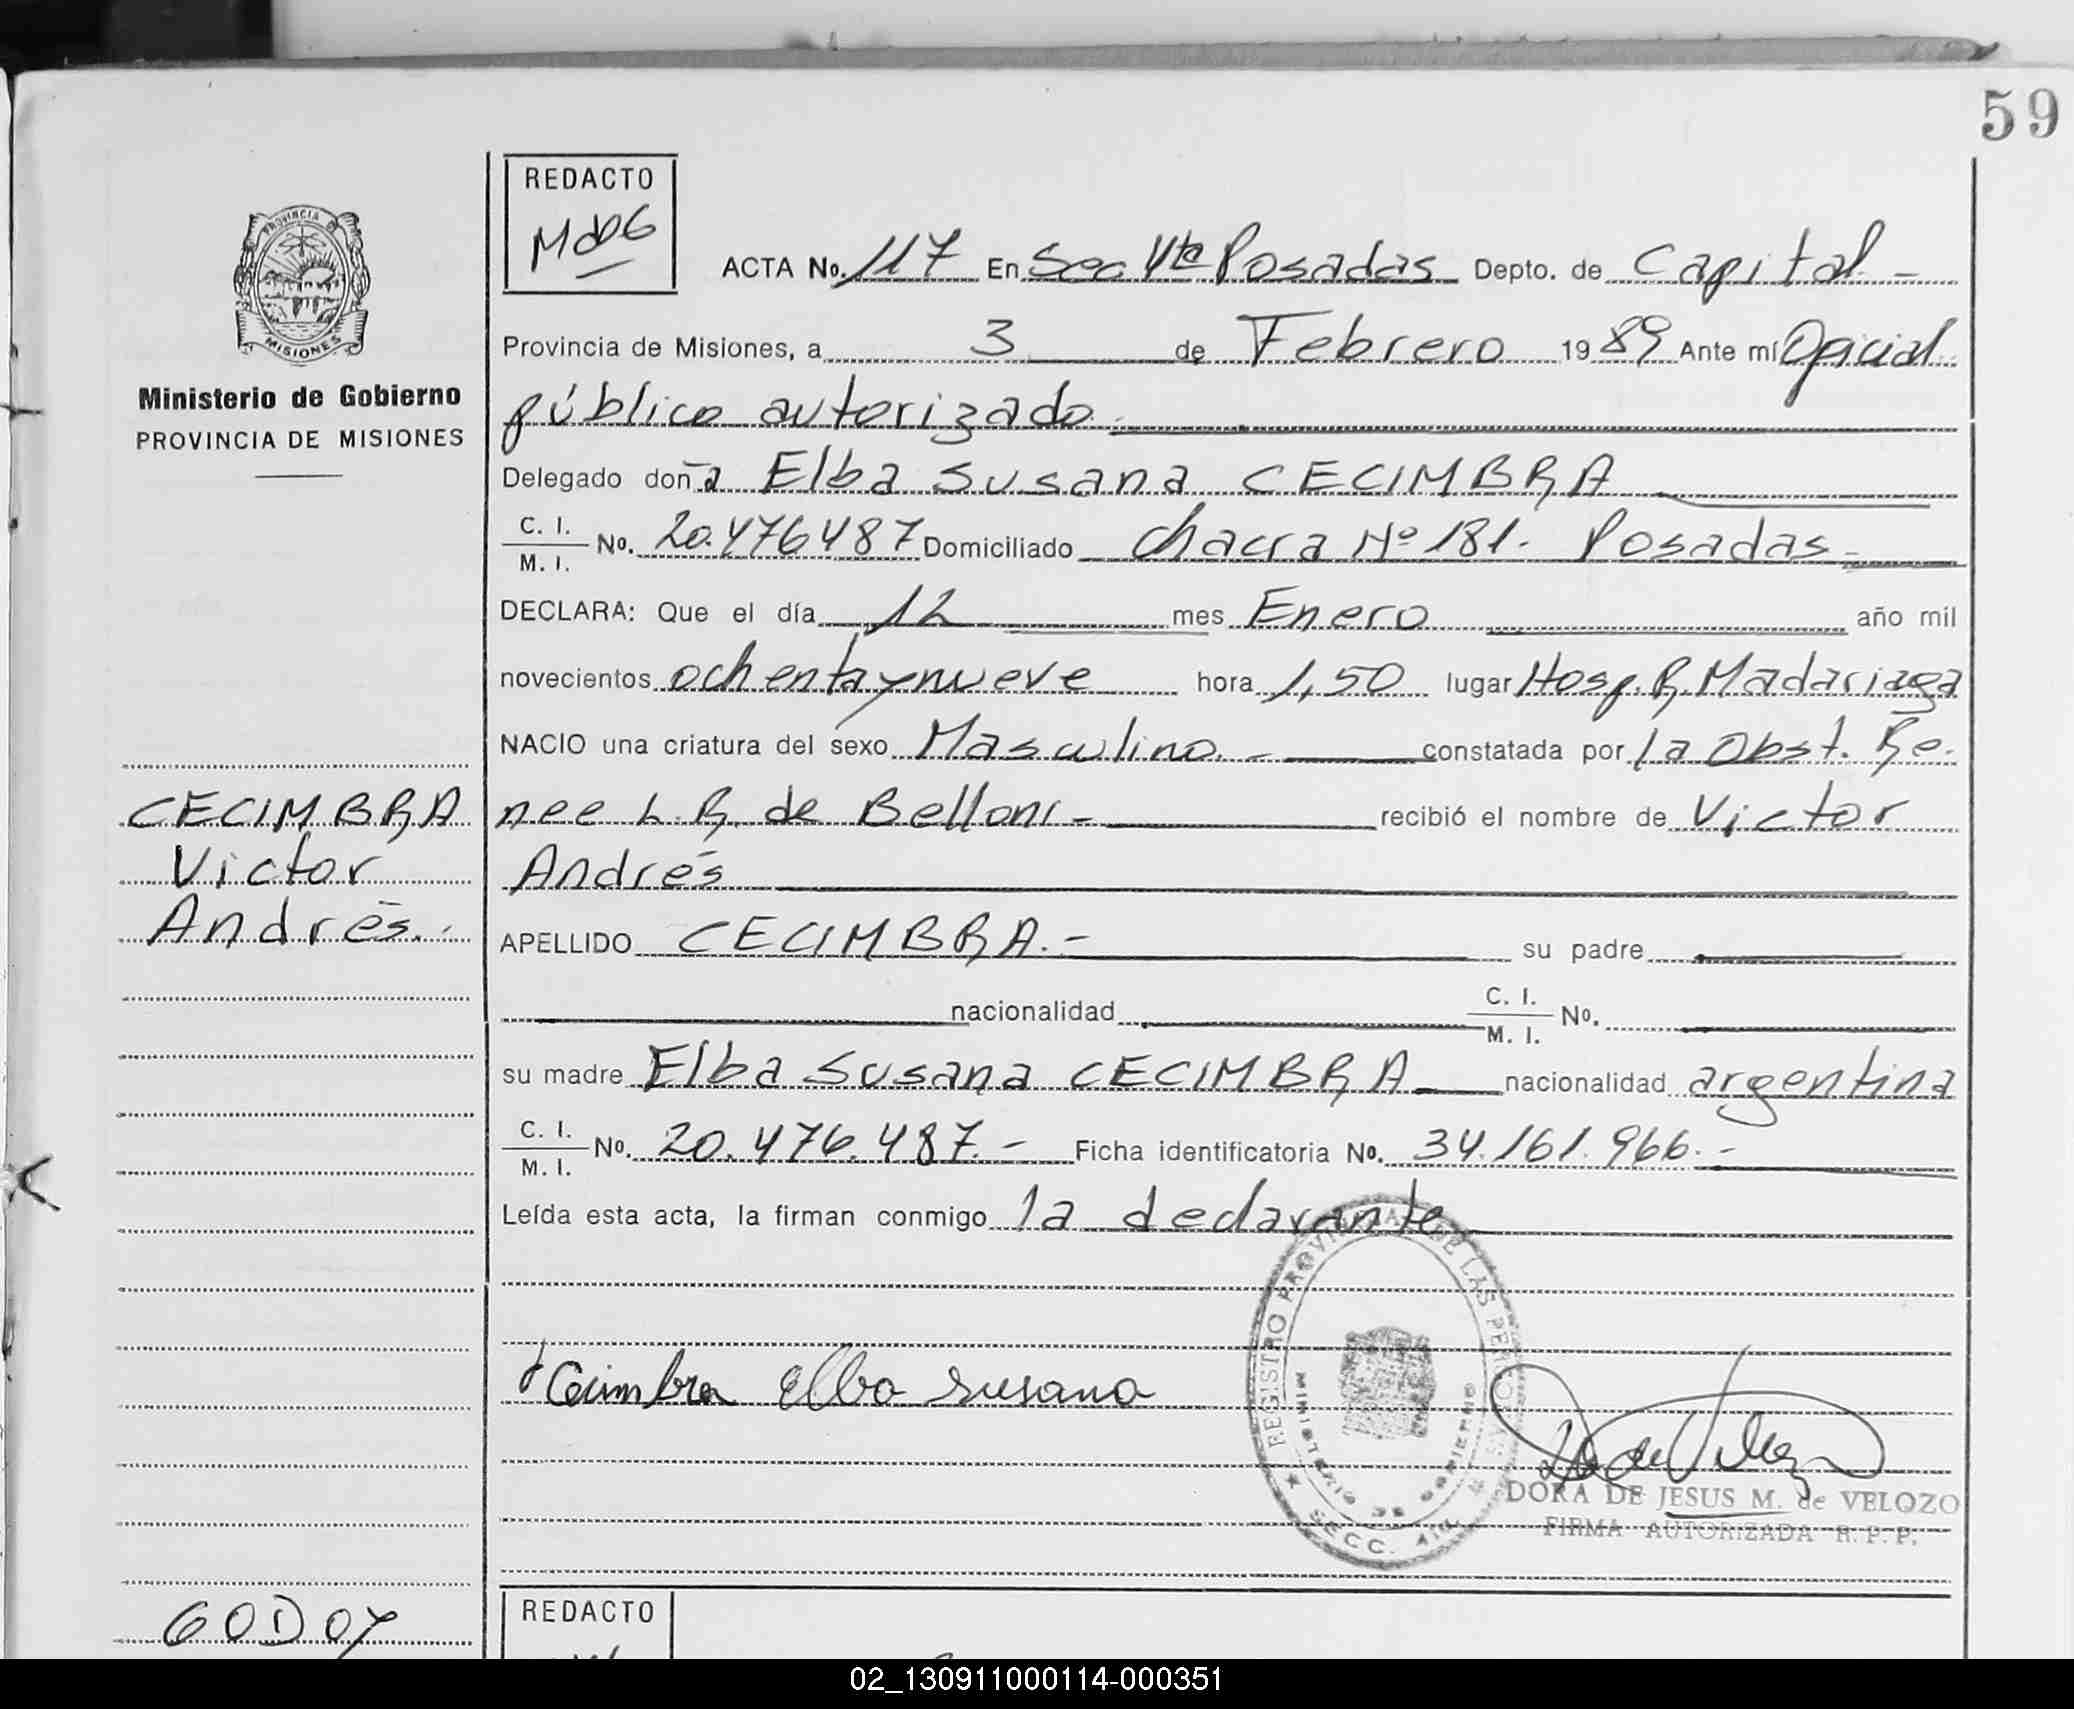 59
REDACTO
MdG
ACTA No. 117 En Sec 4ta Posadas Depto. de Capital -
PROVINCIA
MISIONES
Ministerio de Gobierno
PROVINCIA DE MISIONES
Provincia de Misiones, a 3 de Febrero 1989 Ante mí Oficial
público autorizado.
Delegado doña Elba Susana CECIMBRA
C. I.
M. I. No. 20.476487 Domiciliado chacra Nº 181. Posadas -
DECLARA: Que el día 12 mes Enero año mil
novecientos ochenta y nueve hora 1,50 lugar Hosp. R. Madariaga
NACIO una criatura del sexo Masculino. - constatada por la Obst. Re.
nee L. R. de Belloni - recibió el nombre de Victor
Andrés
CECIMBRA
Victor
Andrés.-
APELLIDO CECIMBRA.- su padre
nacionalidad C. I.
M. I. No.
su madre Elba Susana CECIMBRA nacionalidad argentina
C. I.
M. I. No. 20.476.487.- Ficha identificatoria No. 34.161.966.-
Leída esta acta, la firman conmigo la declarante
Cecimbra Elba Susana
REGISTRO PROVINCIAL DE LAS PERSONAS
MINISTERIO DE GOBIERNO
SECC. 4ta.
DORA DE JESUS M. de VELOZO
FIRMA AUTORIZADA R. P. P.
GODOY
REDACTO
02_130911000114-000351